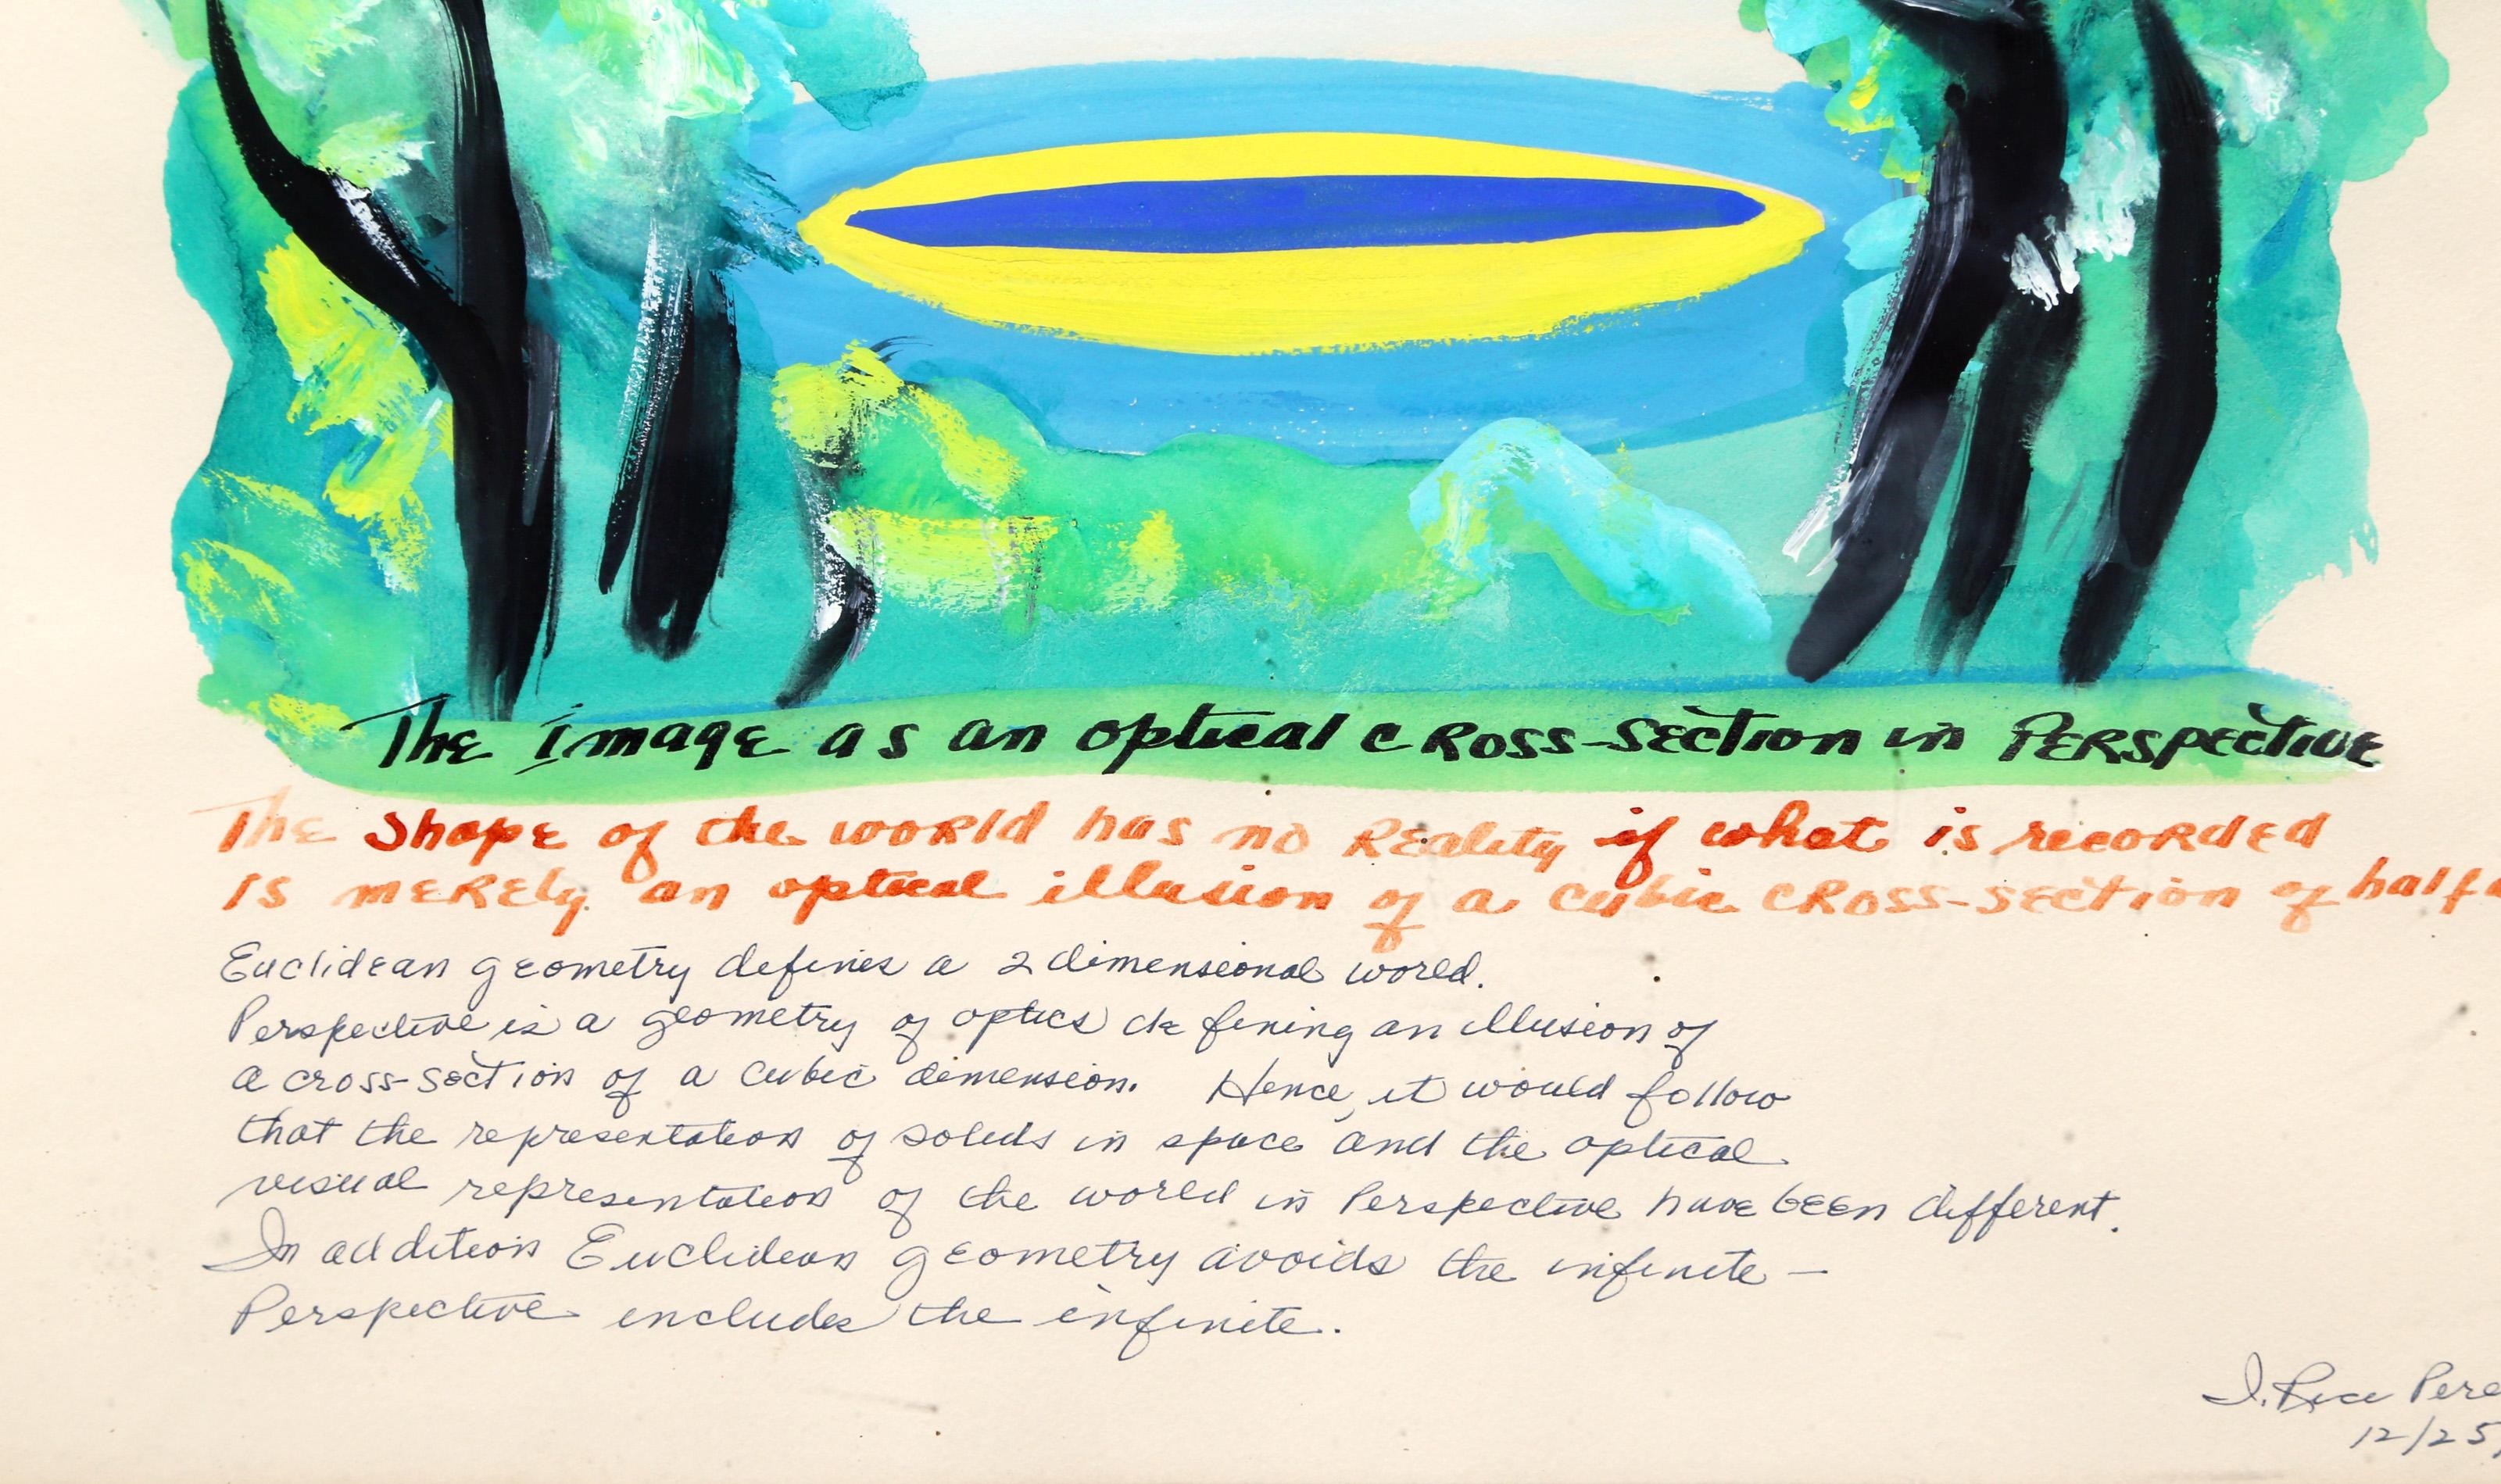 The Image as an optical cross-section in Perspective
The Shape of the world has no Reality if what is recorded
is merely an optical illusion of a cubic cross-section of half
Euclidean geometry defines a 2 dimensional world.
Perspective is a geometry of optics defining an illusion of
a cross-section of a cubic dimension. Hence, it would follow
that the representation of solids in space and the optical
visual representation of the world in Perspective have been different.
In addition Euclidean geometry avoids the infinite –
Perspective includes the infinite.
I. Rice Pere
12/25/